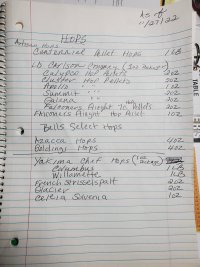 As of
11/27/22
HOPS
Artisan Hops
Centennial Pellet Hops 1 LB
LD Carlson Company (2oz
Calypso Hop Pellets 2oz
Cluster Hop Pellets
Apollo 1oz
Summit 2oz
Galena 2oz
Falconers Flight 7C Hop Pellets 2oz
Falconers Flight Hop Pellet 1oz
Bells Select Hops
Azacca Hops 4oz
Goldings Hops 4oz
Yakima Chef Hops (1oz
Columbus 1 LB
Willamette 1LB
French Strisselspalt 2oz
Glacier 2oz
Celeia Slovenia 1oz
TABLE